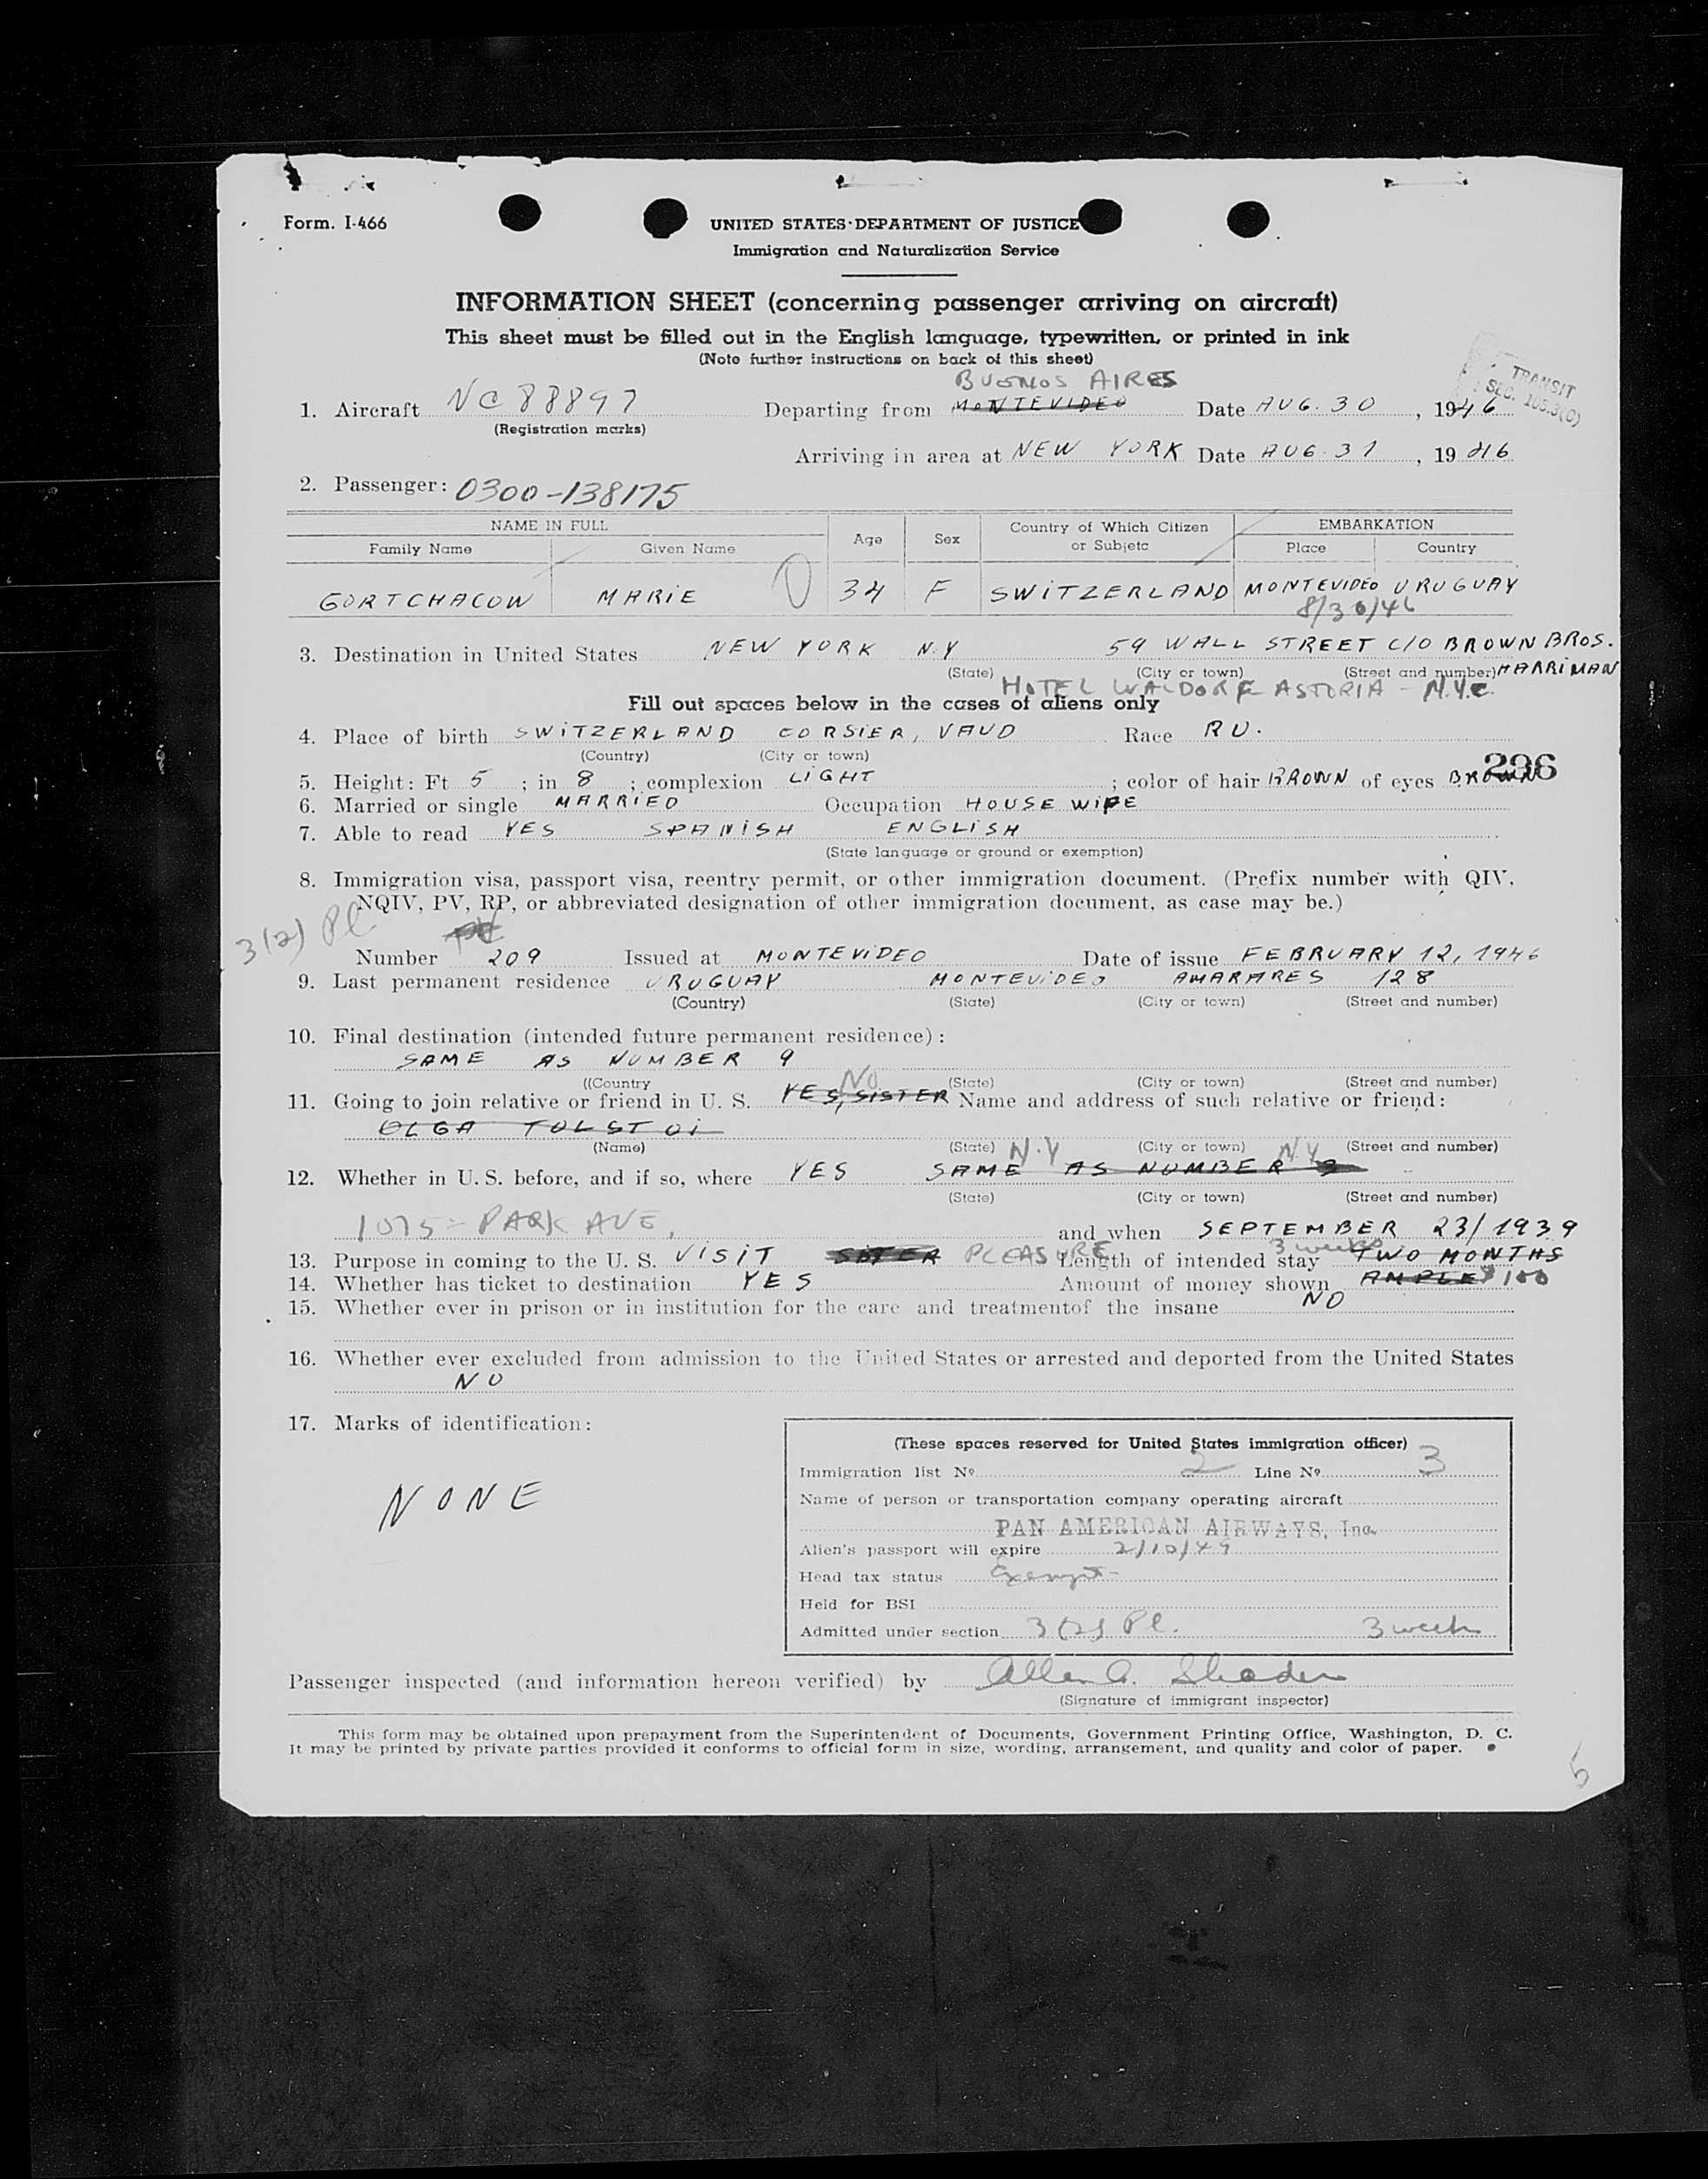 Form. I-466
UNITED STATES DEPARTMENT OF JUSTICE
Immigration and Naturalization Service
INFORMATION SHEET (concerning passenger arriving on aircraft)
This sheet must be filled out in the English language, typewritten, or printed in ink
(Note further instructions on back of this sheet)
TRANSIT
SEC. 105.3(0)
BUENOS AIRES
1. Aircraft NC 88897 Departing from MONTEVIDEO Date AUG. 30, 1946
(Registration marks)
Arriving in area at NEW YORK Date AUG. 31, 1946
2. Passenger: 0300-138175
NAME IN FULL Age Sex Country of Which Citizen or Subjetc EMBARKATION
Family Name Given Name Place Country
GORTCHACOW MARIE 34 F SWITZERLAND MONTEVIDEO URUGUAY
8/30/46
3. Destination in United States NEW YORK N.Y 59 WALL STREET C/O BROWN BROS.
(State) (City or town) (Street and number) HARRIMAN
HOTEL WALDORF ASTORIA - N.Y.C.
Fill out spaces below in the cases of aliens only
4. Place of birth SWITZERLAND CORSIER, VAUD Race RU.
(Country) (City or town)
296
5. Height: Ft 5 ; in 8 ; complexion LIGHT ; color of hair BROWN of eyes BROWN
6. Married or single MARRIED Occupation HOUSE WIFE
7. Able to read YES SPANISH ENGLISH
(State language or ground or exemption)
8. Immigration visa, passport visa, reentry permit, or other immigration document. (Prefix number with QIV,
NQIV, PV, RP, or abbreviated designation of other immigration document, as case may be.)
3(2) Pl
PV
Number 209 Issued at MONTEVIDEO Date of issue FEBRUARY 12, 1946
9. Last permanent residence URUGUAY MONTEVIDEO AMARARES 128
(Country) (State) (City or town) (Street and number)
10. Final destination (intended future permanent residence):
SAME AS NUMBER 9
((Country (State) (City or town) (Street and number)
NO
11. Going to join relative or friend in U. S. YES, SISTER Name and address of such relative or friend:
OLGA TOLSTOI
(Name) (State) (City or town) (Street and number)
N.Y N.Y
12. Whether in U. S. before, and if so, where YES SAME AS NUMBER 3
(State) (City or town) (Street and number)
1075 - PARK AVE, and when SEPTEMBER 23/1939
3 weeks
13. Purpose in coming to the U. S. VISIT SISTER PLEASURE Length of intended stay TWO MONTHS
14. Whether has ticket to destination YES Amount of money shown AMPLE $100
15. Whether ever in prison or in institution for the care and treatmentof the insane NO
16. Whether ever excluded from admission to the United States or arrested and deported from the United States
NO
17. Marks of identification:
NONE
(These spaces reserved for United States immigration officer)
Immigration list Nº 2 Line Nº 3
Name of person or transportation company operating aircraft
PAN AMERICAN AIRWAYS, Inc.
Alien's passport will expire 2/10/49
Head tax status Exempt
Held for BSI
Admitted under section 3(2) Pl. 3 week
Passenger inspected (and information hereon verified) by Allen A.
(Signature of immigrant inspector)
This form may be obtained upon prepayment from the Superintendent of Documents, Government Printing Office, Washington, D. C.
It may be printed by private parties provided it conforms to official form in size, wording, arrangement, and quality and color of paper.
5